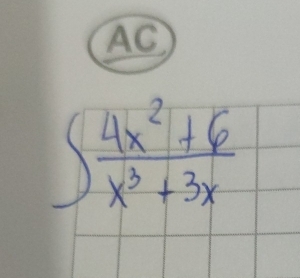 AC
∫ (4x² + 6)/(x³ + 3x)